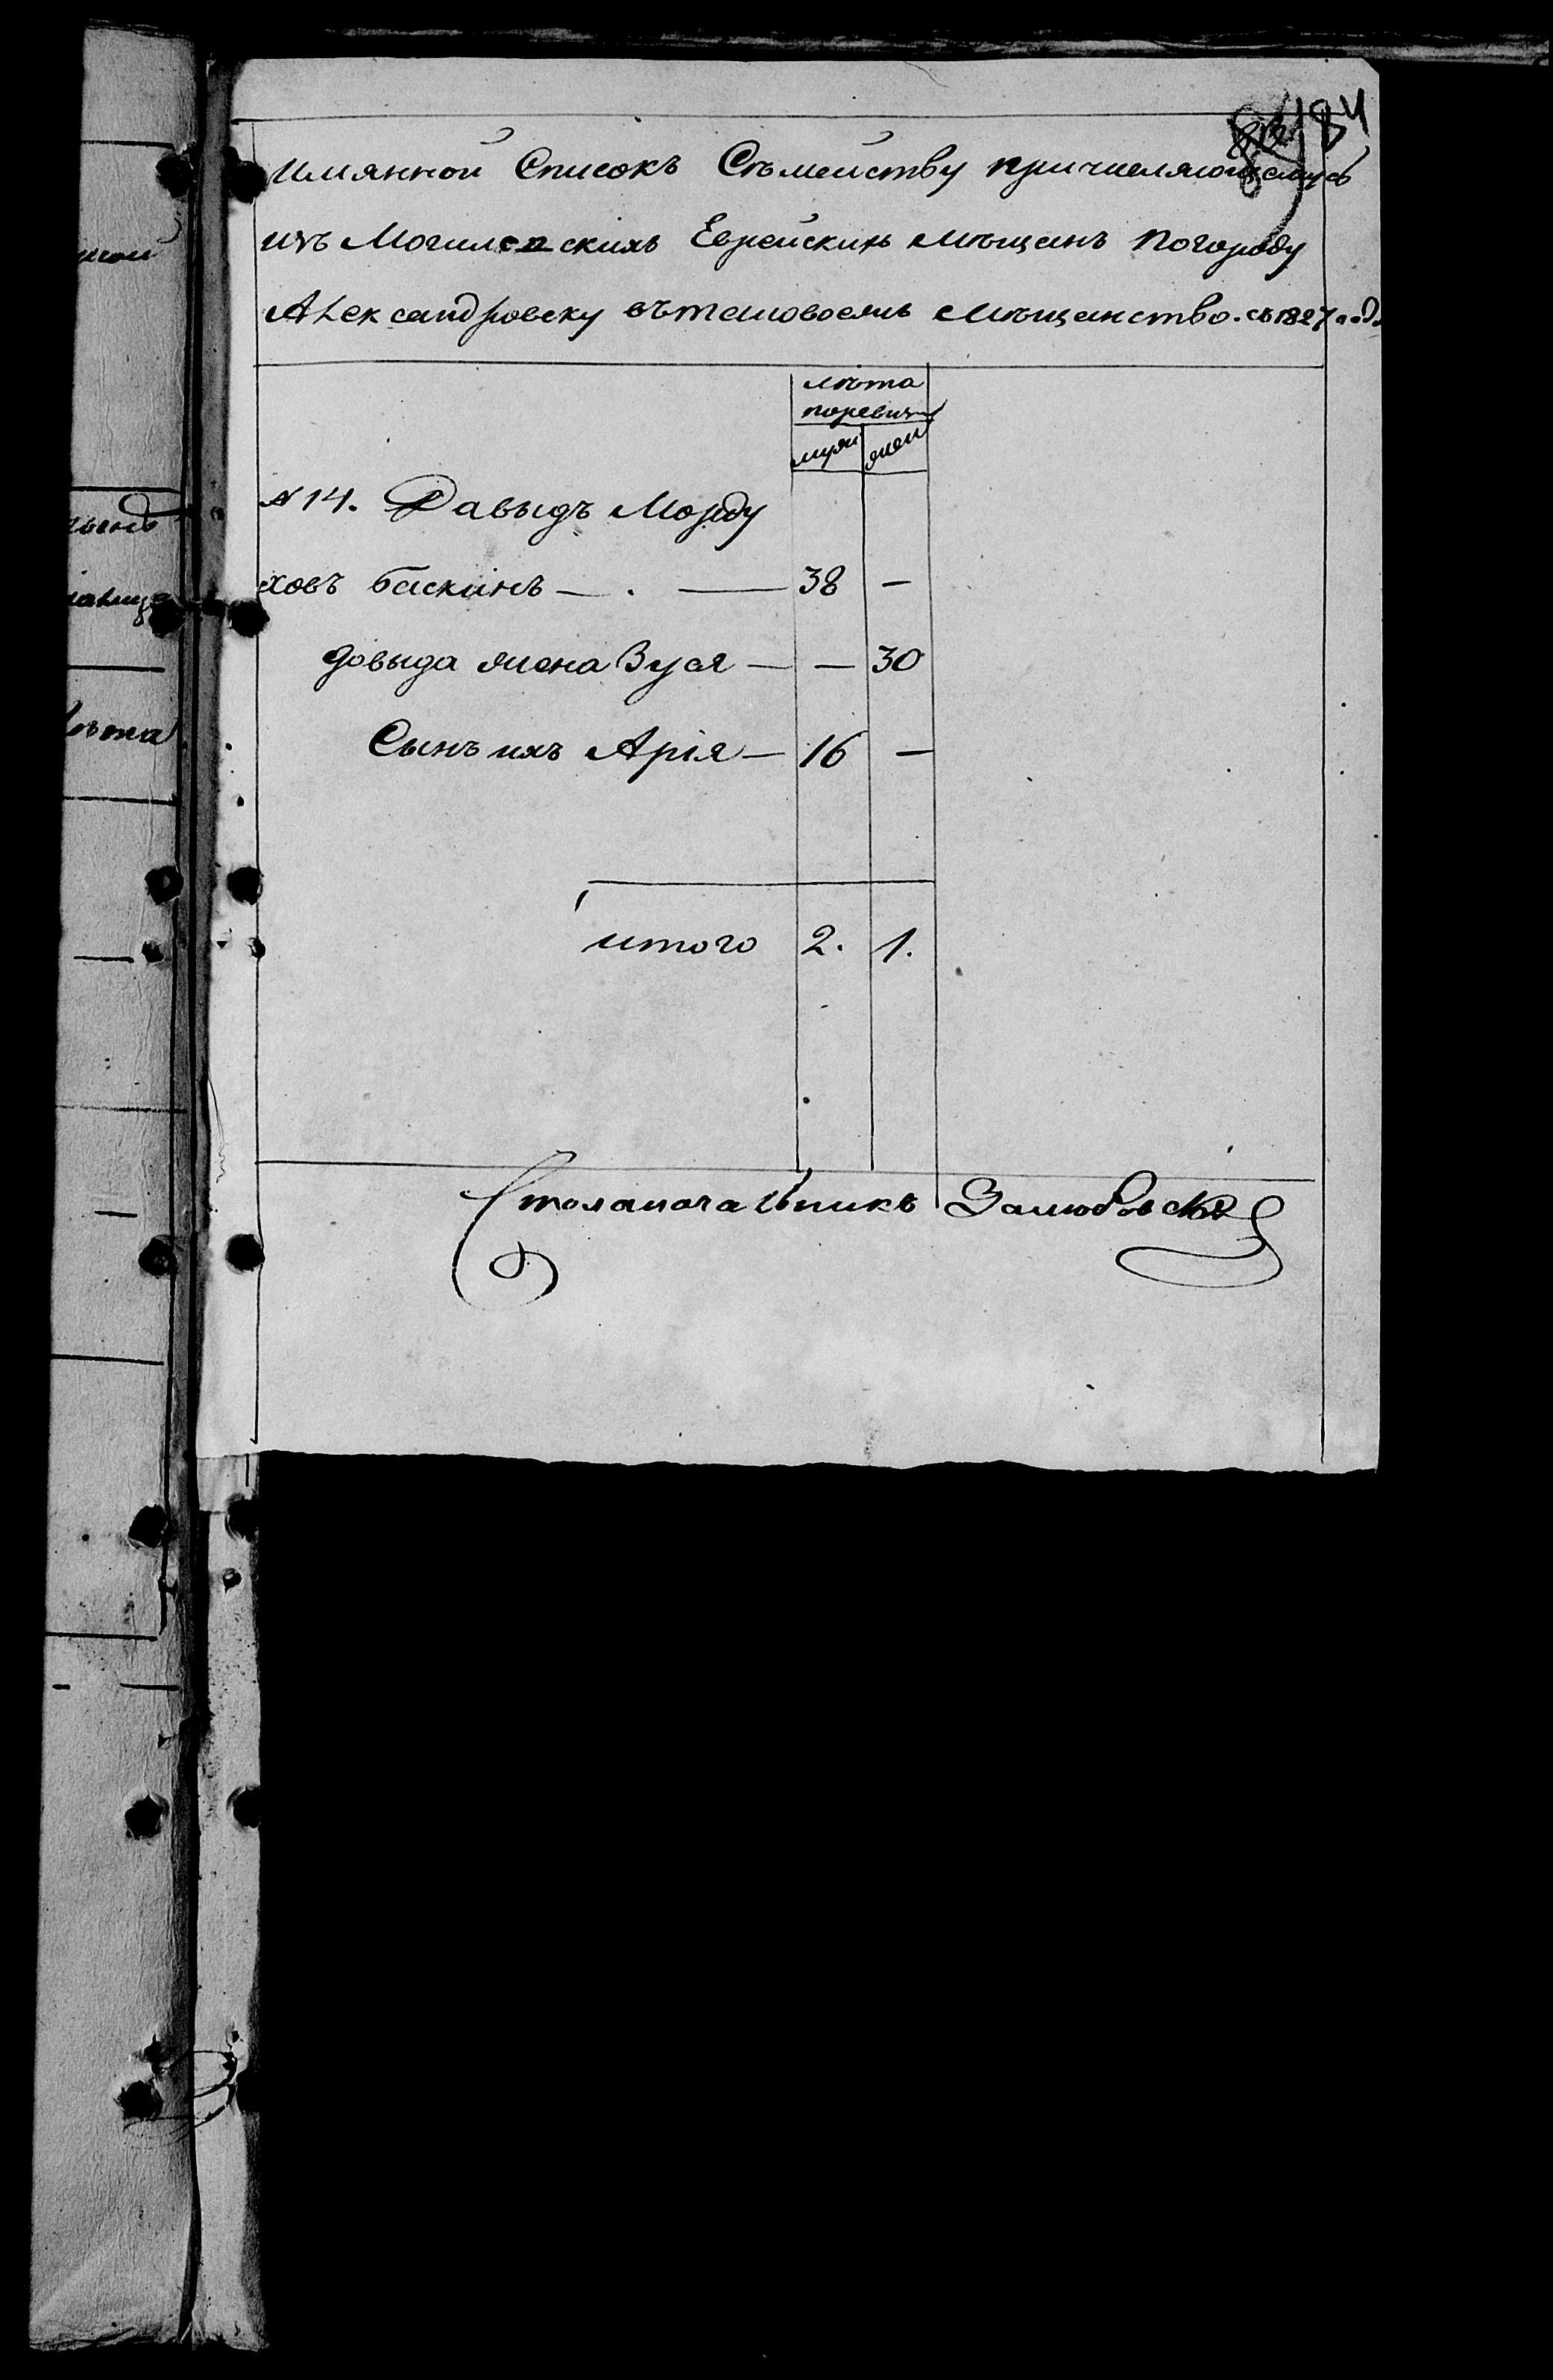 184
имянной Списокъ Съмейству причисляющемусь
изъ Могилевскихъ Еврейскихъ мѣщанъ погороду
Александровску вътамовоемъ мѣщанство. съ 1827 год.
лѣта
поревиз
муж жен
№ 14. Давыдъ Морду
ховъ баскинъ — . — 38 —
довыда жена Зуся — — 30
Сынъ ихъ Арія — 16 —
итого 2. 1.
Столаначальникъ